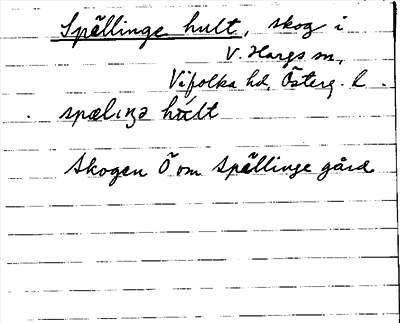 Spellinge hult, skog i
V. Hargs sn,
Vifolka hd, Österg. l.
spælɩŋə hult
Skogen Ö om Spellinge gård